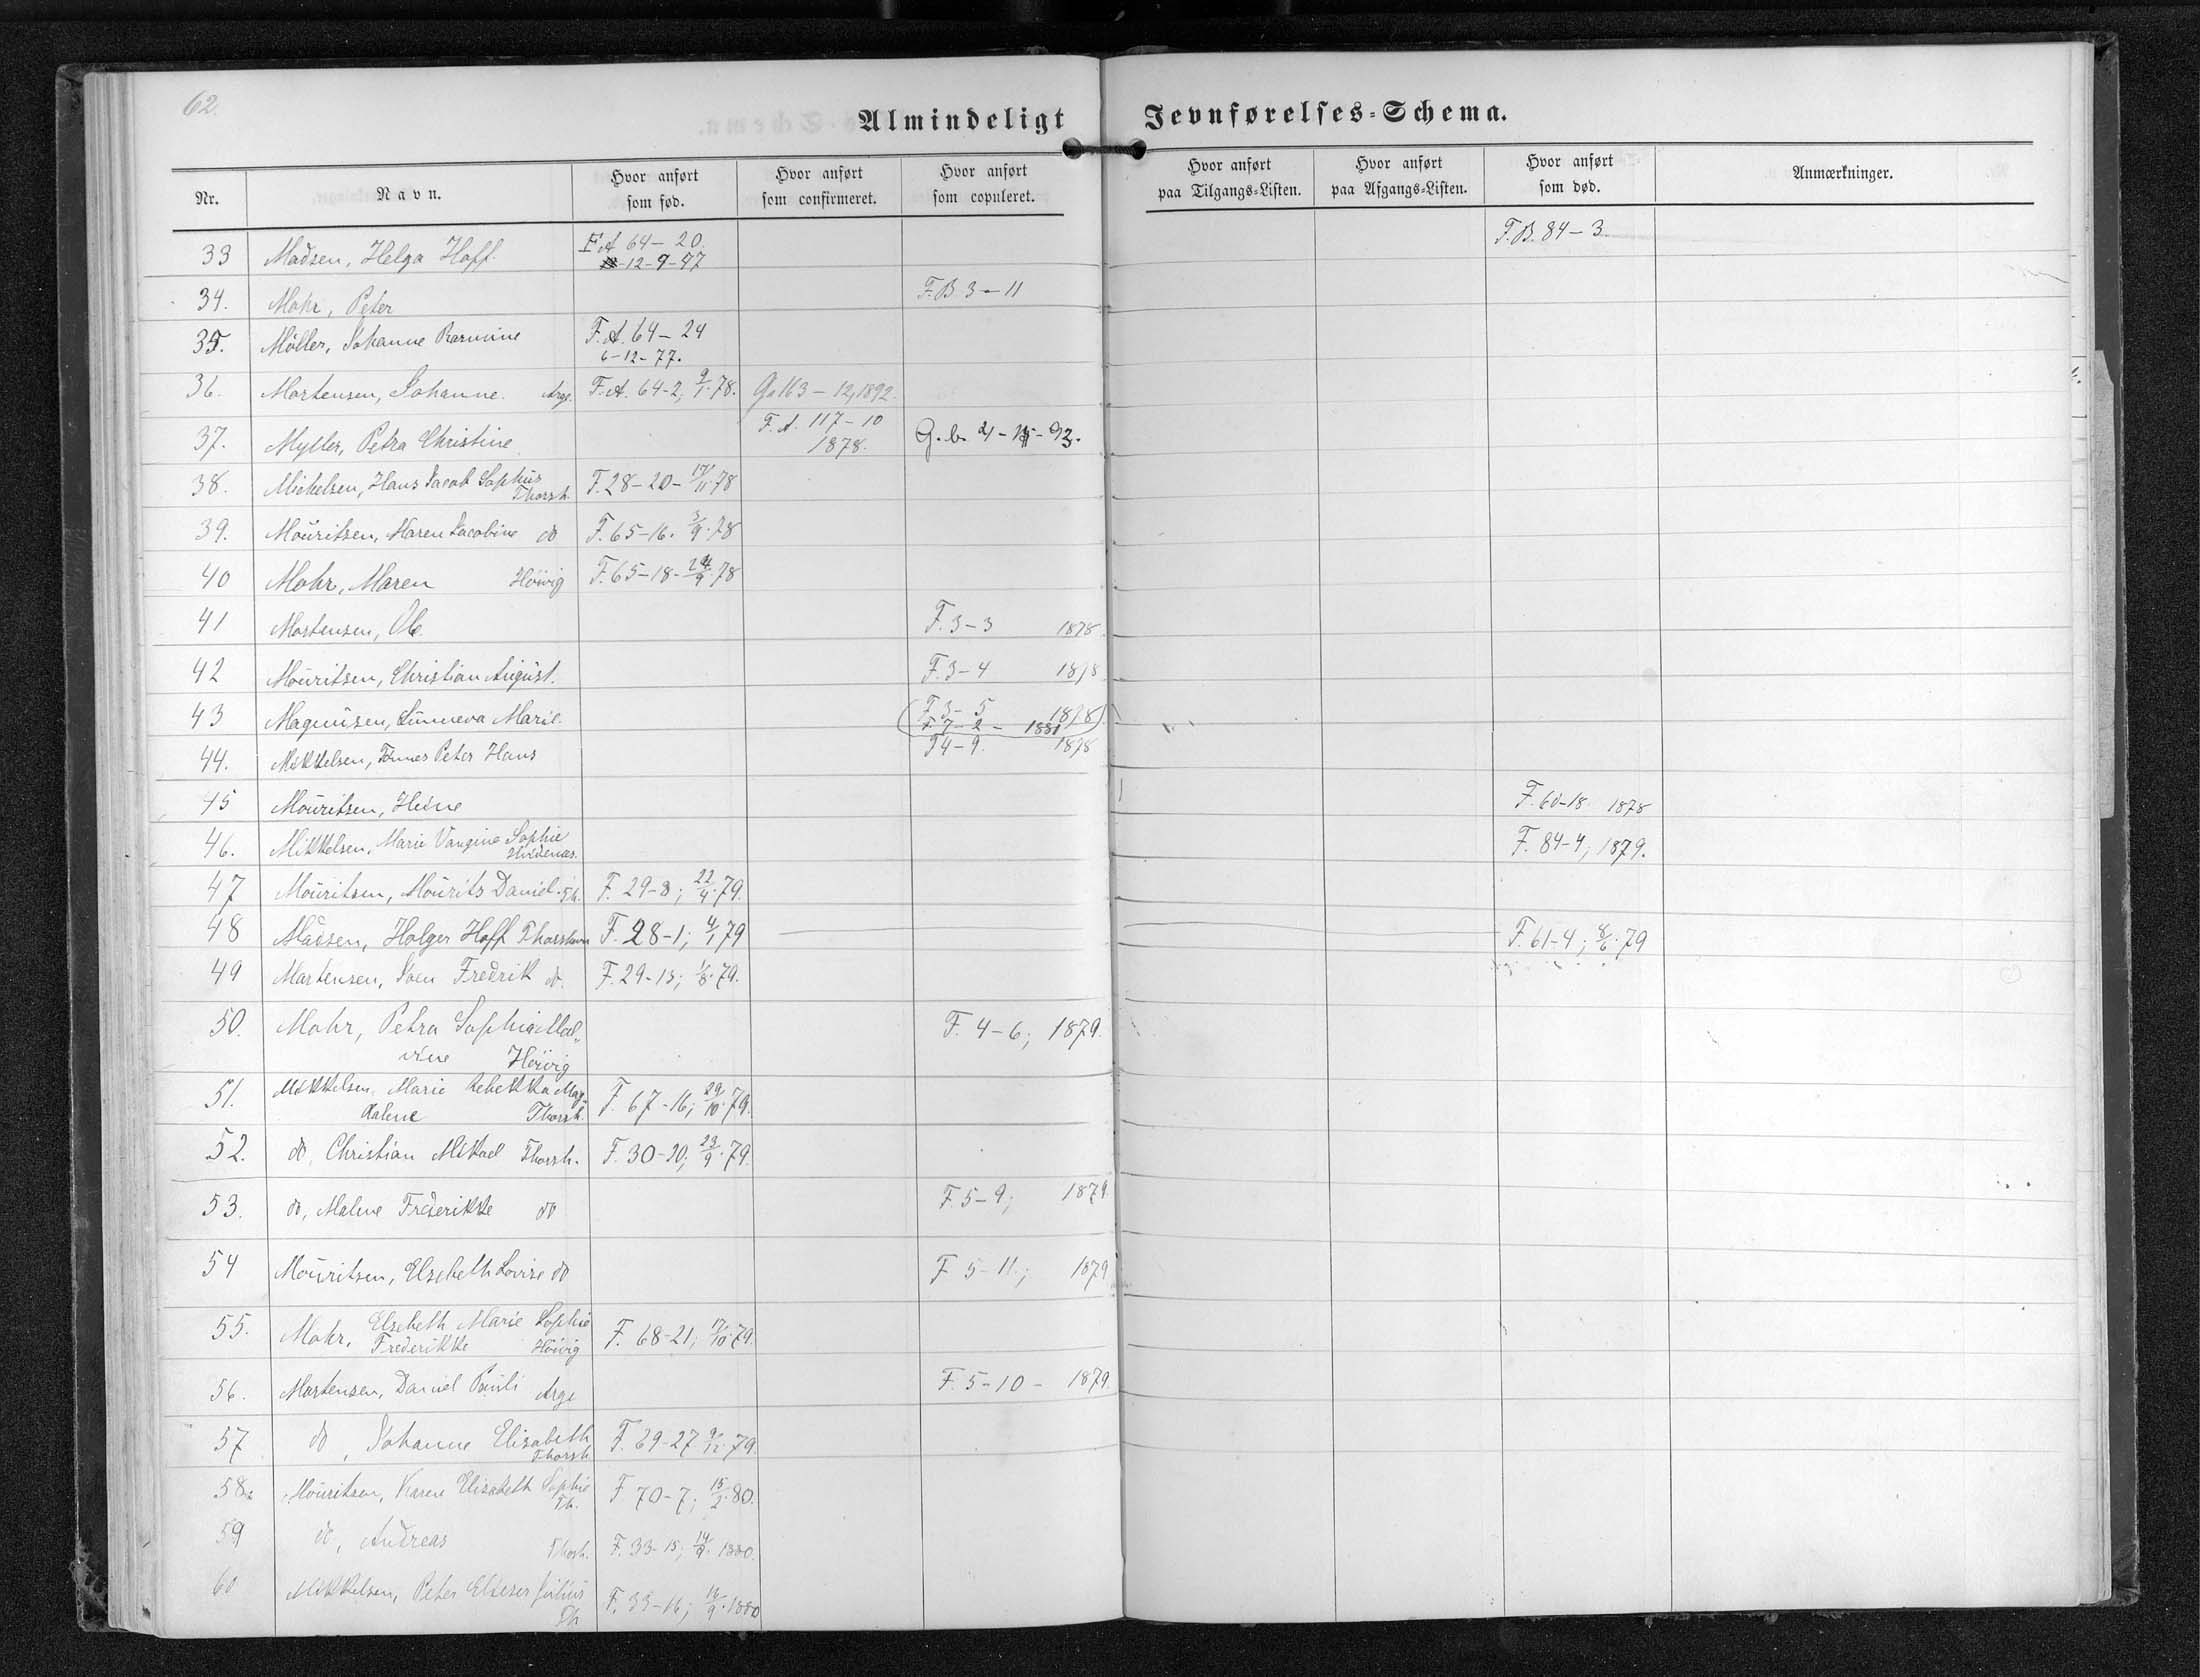 62.
Almindeligt Jevnførelses-Schema.
Nr. Navn. Hvor anført som fød. Hvor anført som confirmeret. Hvor anført som copuleret. Hvor anført paa Tilgangs-Listen. Hvor anført paa Afgangs-Listen. Hvor anført som død. Anmærkninger.
33 Madsen, Helga Hoff. F.A. 64-20. F.B. 84-3.
12-9-77
34. Mohr, Peter F.B. 3-11
35. Möller, Johanne F.A. 64-24
6-12-77.
36. Mortensen, Johanne. Arge. F.A. 64-2, 9/1.78. G. 163-12, 1892.
37. Myller, Petra Christine F.A. 117-10
1878. G.b. 4-
38. Michelsen, Hans Jacob Sophus F. 28-20-17/11 78
Thorsh.
39. Mouritsen, Maren Jacobine do F. 65-16. 3/9.78
40 Mohr, Maren Höivig F. 65-18-24/9.78
41 Mortensen, Ole F. 3-3 1878.
42 Mouritsen, Christian August. F. 3-4 1878
43 Magnusen, Sunneva Marie. F. 3-5 1878
F. 7-2- 1881
44. Mikkelsen, Peter Hans 1878
45 Mouritsen, Heine F. 60-18. 1878
46. Mikkelsen, Marie Vangine Sophie F. 84-4, 1879.
Hvidenæs.
47 Mouritsen, Mourits Daniel. Th. F. 29-8; 22/4.79.
48 Madsen, Holger Hoff Thorshavn F. 28-1; 4/1 79 F. 61-4; 8/6.79
49 Martensen, Fredrik do. F. 29-15; 79.
50. Mohr, Petra Sophia Mal- F. 4-6; 1879.
vine Höivig
51. Mikkelsen, Marie Rebekka Mag- F. 67-16; 29/10.79.
dalene Thorsh.
52. do, Christian Mikael Thorsh. F. 30-20; 23/9.79.
53. do, Malene Frederikke do F. 5-9; 1879.
54 Mouritsen, Elsebeth Lovise do F 5-11.; 1879
55. Mohr, Elsebeth Marie Sophie
Frederikke Höivig F. 68-21; 17/10.79.
56. Mortensen, Daniel Pauli Arge F. 5-10- 1879.
57 do, Johanne Elisabeth F. 69-27 9/12.79.
Thorsh.
58. Mouritsen, Karen Elisabeth Sophie F 70-7; 15/2.80.
Th.
59 do, Andreas Thorsh. F. 33-15; 14/9.1880.
60 Mikkelsen, Peter Elieser Julius F. 33-16; 1880
Th